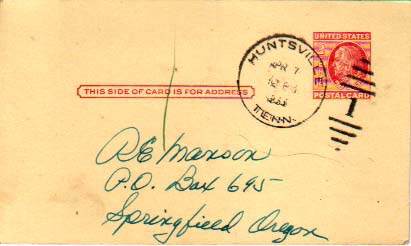 UNITED STATES
POSTAL CARD
HUNTSVILLE
APR 7
TENN.
1
THIS SIDE OF CARD IS FOR ADDRESS
RE Manson
P.O. Box 695
Springfield Oregon